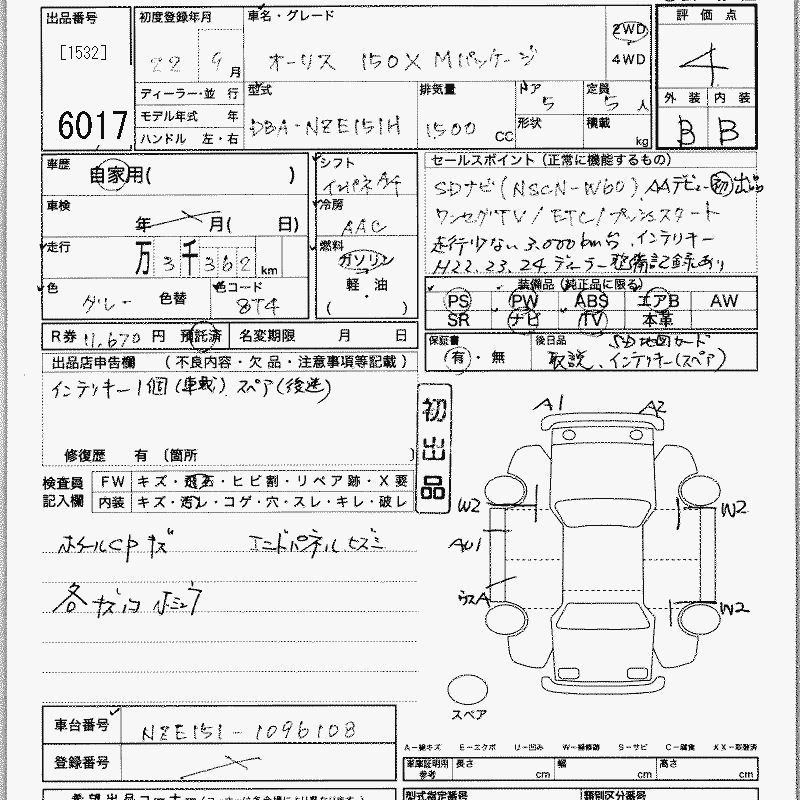 出品番号
[1532]
6017
初度登録年月
22 9 月
ディーラー・並 行
モデル年式 年
ハンドル 左・右
車名・グレード
オーリス 150X Mパッケージ
2WD
4WD
型式
DBA-NZE151H
排気量
1500 CC
ドア
5
形状
定員
5 人
積載
kg
評 価 点
4
外 装 内 装
B B
車歴
自家用( )
車検
年 月( 日)
走行
万 3 千 362 km
色
グレー 色替
色コード
8T4
シフト
インパネAT
冷房
AAC
燃料
ガソリン
軽・油
( )
セールスポイント(正常に機能するもの)
SDナビ(NSCN-W60) AAデビュー 初出品
ワンセグTV / ETC / プッシュスタート
走行少ない 3.000km台、インテリキー
H22.23.24.ディーラー整備記録あり
装備品(純正品に限る)
PS PW ABS エアB AW
SR ナビ TV 本革
R券 11,670 円 預託済 名変期限 月 日
保証書
有・無
後日品
SD地図カード
取説、インテリキー(スペア)
出品店申告欄 (不良内容・欠品・注意事項等記載)
インテリキー1個(車載) スペア(後送)
修復歴 有 〔箇所 〕
初出品
検査員
記入欄
FW キズ・飛石・ヒビ割・リペア跡・X要
内装 キズ・汚れ・コゲ・穴・スレ・キレ・破レ
ホイールCPキズ エンドパネルヒズミ
各キズ凹
A1 A2
W2 W2
AU1
A
W2
スペア
車台番号
NZE151-1096108
登録番号
A-線キズ E-エクボ U-凹み W-補修跡 S-サビ C-腐食 XX-取替済
車庫証明用
参考
長さ cm 幅 cm 高さ cm
型式指定番号 類別区分番号